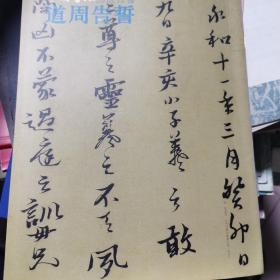 道周告誓
永和十一年三月癸卯日
九日辛亥小子羲之敢
尊之靈羲之不天夙
閔凶不蒙過庭之訓母兄